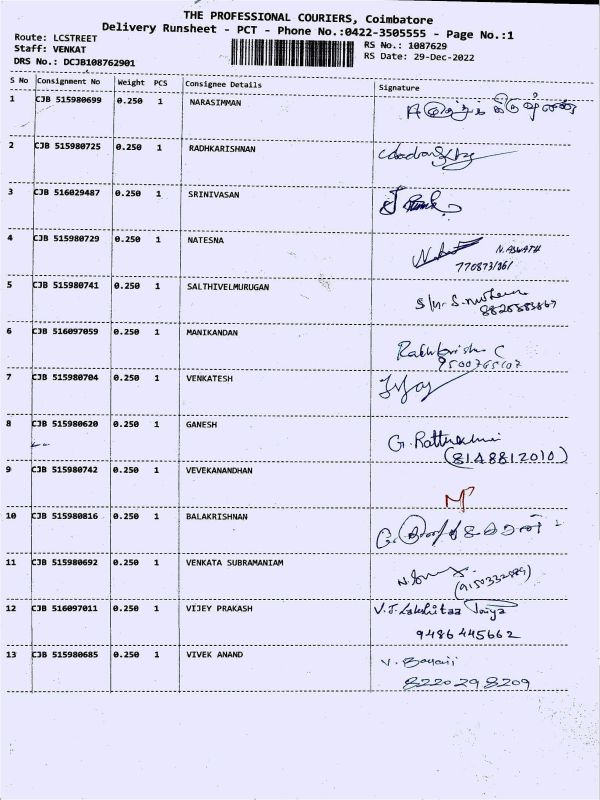 THE PROFESSIONAL COURIERS, Coimbatore
Delivery Runsheet - PCT - Phone No.:0422-3505555 - Page No.:1
Route: LCSTREET
Staff: VENKAT
DRS No.: DCJB108762901
RS No.: 1087629
RS Date: 29-Dec-2022
S No Consignment No Weight PCS Consignee Details Signature
1 CJB 515980699 0.250 1 NARASIMMAN
2 CJB 515980725 0.250 1 RADHKARISHNAN
3 CJB 516029487 0.250 1 SRINIVASAN
4 CJB 515980729 0.250 1 NATESNA
N. ASWATH
5 CJB 515980741 0.250 1 SALTHIVELMURUGAN
6 CJB 516097059 0.250 1 MANIKANDAN
7 CJB 515980704 0.250 1 VENKATESH
8 CJB 515980620 0.250 1 GANESH
G.
(8148812010)
9 CJB 515980742 0.250 1 VEVEKANANDHAN
10 CJB 515980816 0.250 1 BALAKRISHNAN
11 CJB 515980692 0.250 1 VENKATA SUBRAMANIAM
12 CJB 516097011 0.250 1 VIJEY PRAKASH V.J.
9486445662
13 CJB 515980685 0.250 1 VIVEK ANAND V.
8220298209